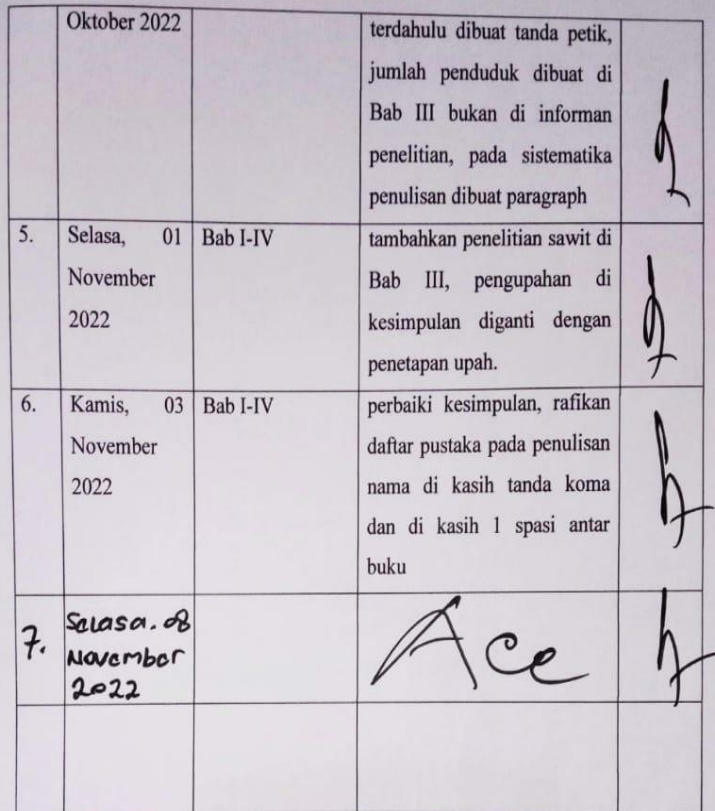 Oktober 2022
terdahulu dibuat tanda petik,
jumlah penduduk dibuat di
Bab III bukan di informan
penelitian, pada sistematika
penulisan dibuat paragraph
5.
Selasa, 01
November
2022
Bab I-IV
tambahkan penelitian sawit di
Bab III, pengupahan di
kesimpulan diganti dengan
penetapan upah.
6.
Kamis, 03
November
2022
Bab I-IV
perbaiki kesimpulan, rafikan
daftar pustaka pada penulisan
nama di kasih tanda koma
dan di kasih 1 spasi antar
buku
7.
Selasa. 08
November
2022
Acc